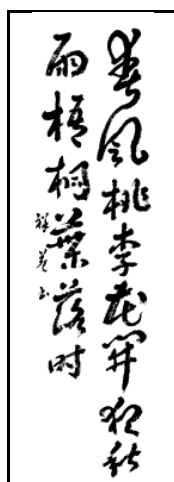 春风桃李花開夜秋
雨梧桐葉落时